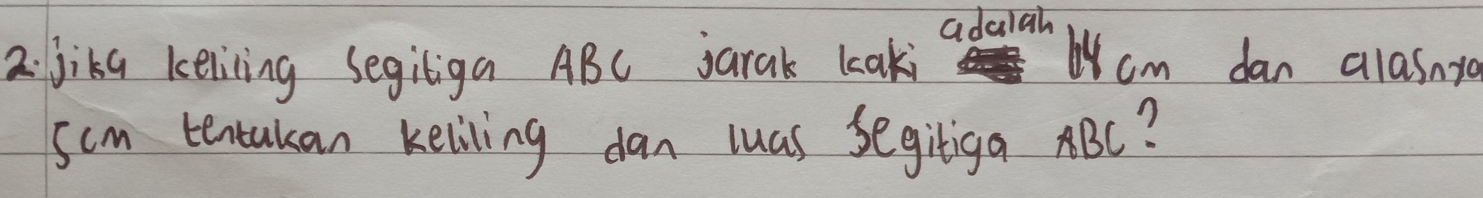 2. jika keliling segitiga ABC jarak kaki adalah cm dan alasnya
5cm tentukan keliling dan luas segitiga ABC?